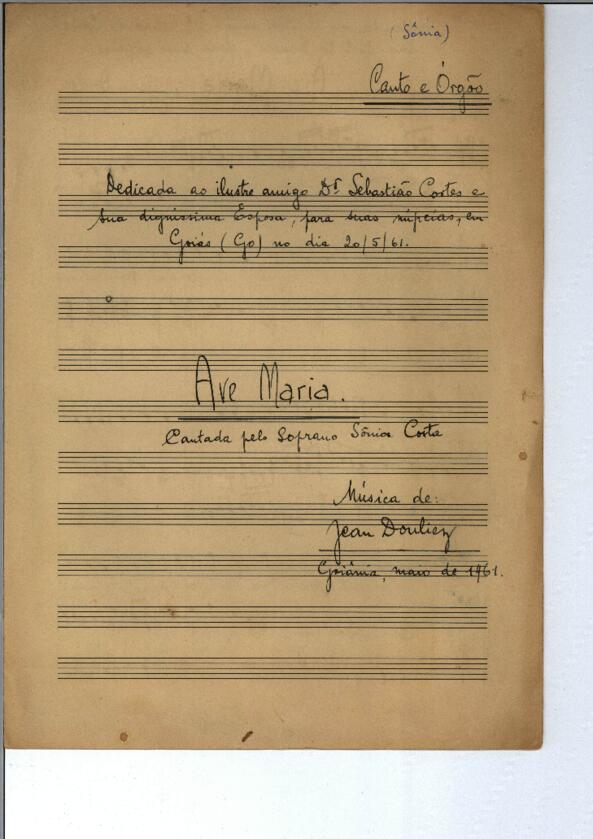 (Sônia)
Canto e Órgão
Dedicada ao ilustre amigo Dr Sebastião Cortes e
sua digníssima Esposa, para suas núpcias, em
Goiás (Go) no dia 20/5/61.
Ave Maria.
Cantada pelo Soprano Sônia Corte
Música de:
Jean Douliez
Goiânia, maio de 1961.